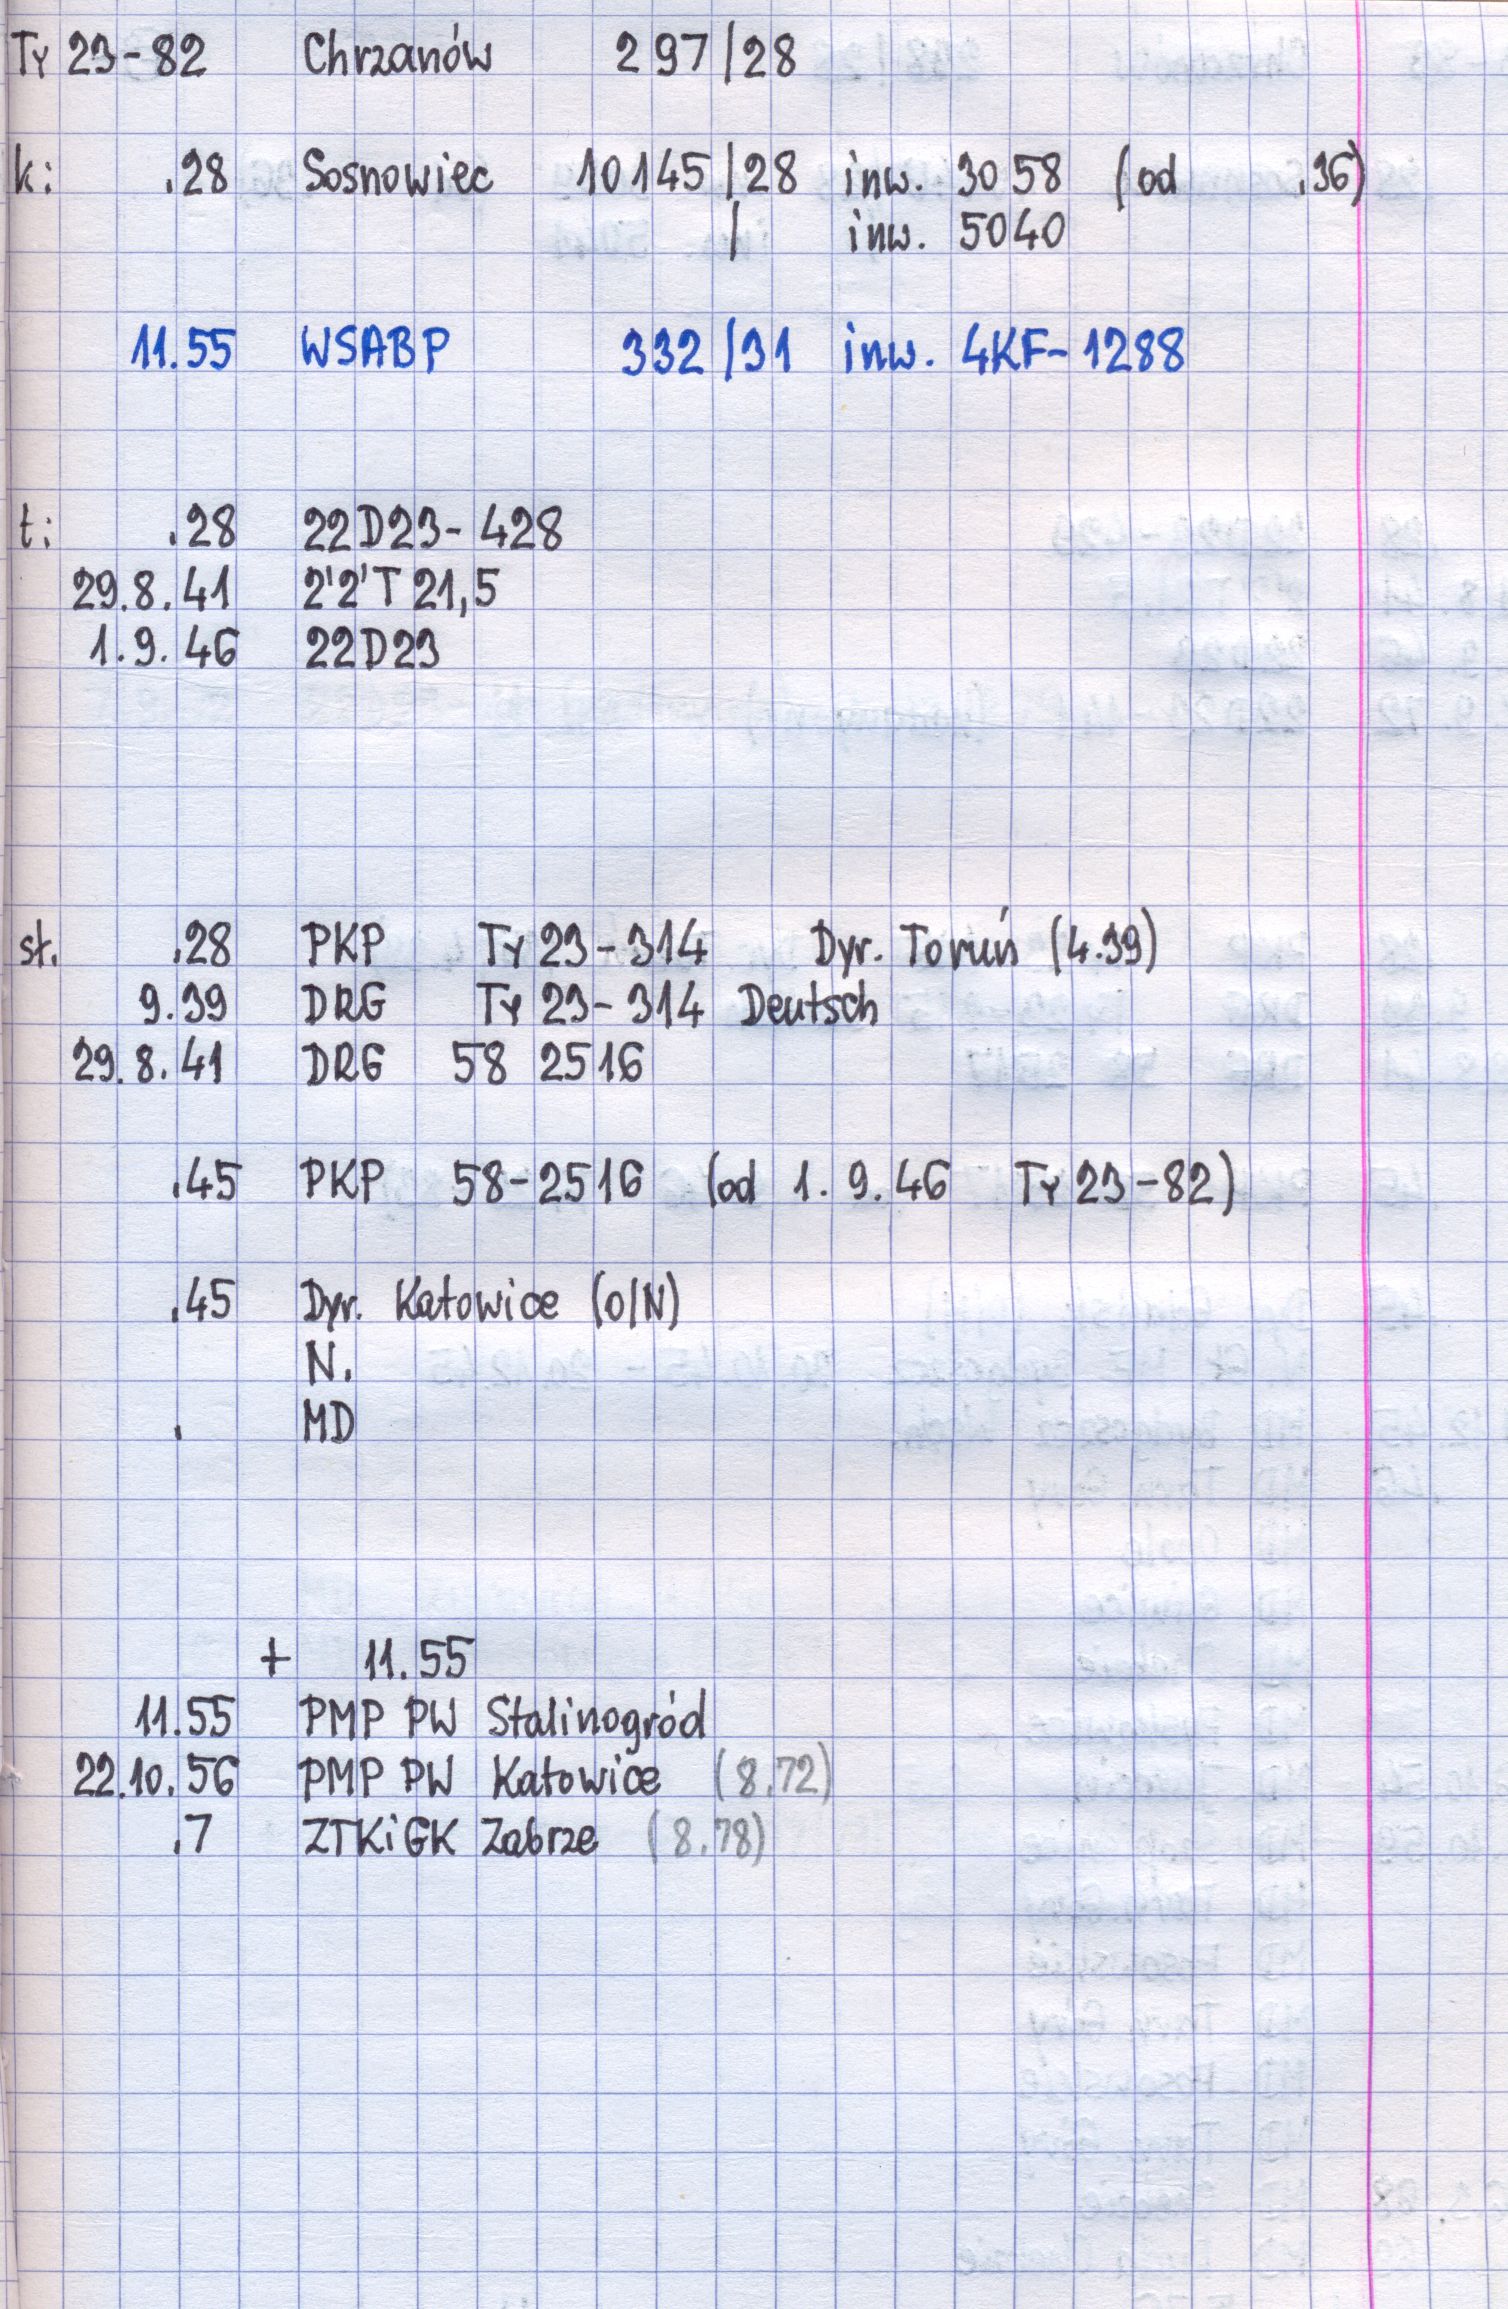 Ty 23-82 Chrzanów 297/28
k: .28 Sosnowiec 10145/28 inw. 3058 (od .36)
/ inw. 5040
11.55 WSABP 332/31 inw. 4KF-1288
t: .28 22D23-428
29.8.41 2'2'T 21,5
1.9.46 22D23
sł. .28 PKP Ty 23-314 Dyr. Toruń (4.39)
9.39 DRG Ty 23-314 Deutsch
29.8.41 DRG 58 2516
.45 PKP 58-2516 (od 1.9.46 Ty 23-82)
.45 Dyr. Katowice (O/N)
N.
. MD
+ 11.55
11.55 PMP PW Stalinogród
22.10.56 PMP PW Katowice (8.72)
.7 ZTKiGK Zabrze (8.78)